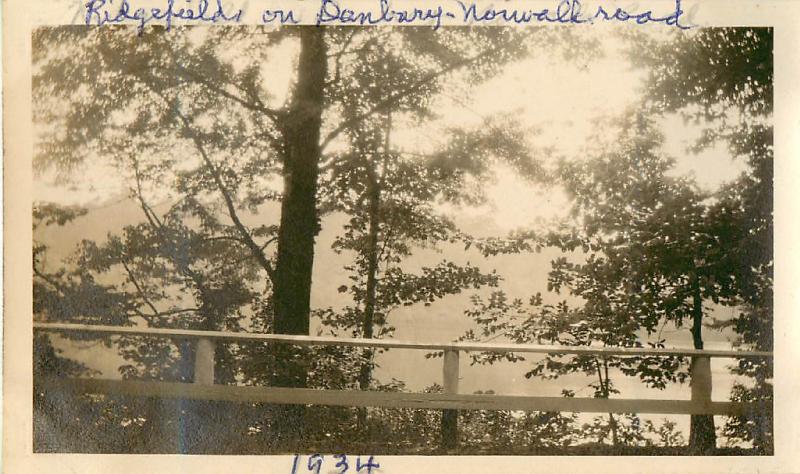 Ridgefield, on Danbury-Norwalk road
1934